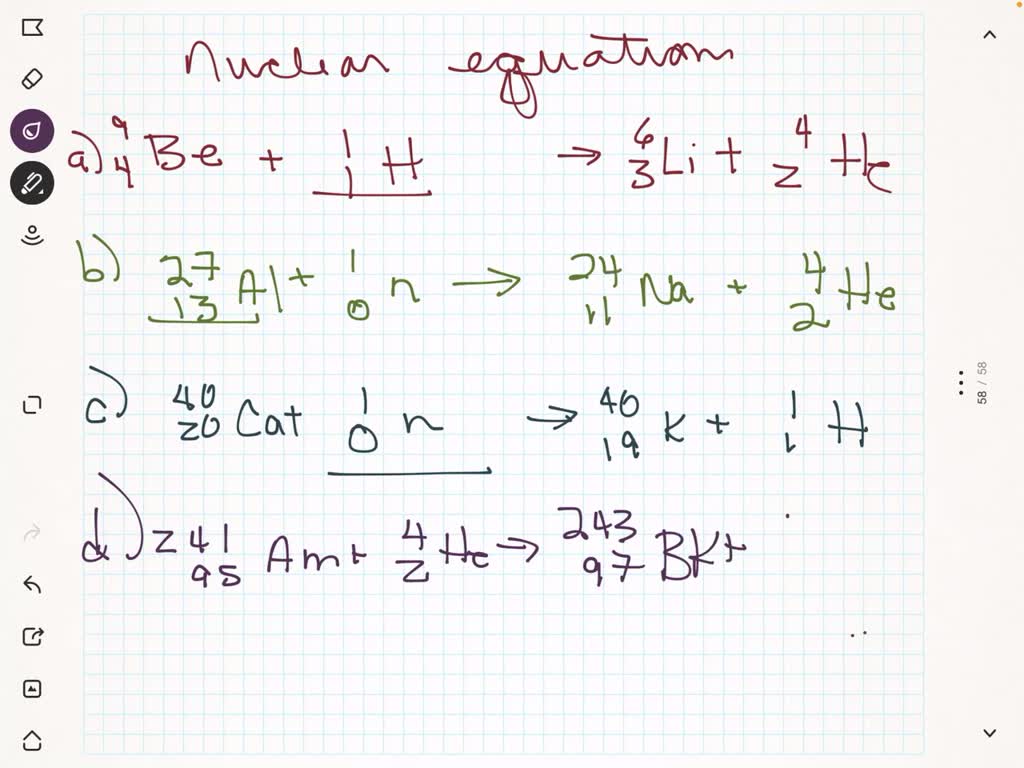 Nuclear equations
a) 9 4 Be + 1 1 H → 6 3 Li + 4 2 He
b) 27 13 Al + 1 0 n → 24 11 Na + 4 2 He
c) 40 20 Ca + 1 0 n → 40 19 K + 1 1 H
d) 241 95 Am + 4 2 He → 243 97 BK +
58 / 58